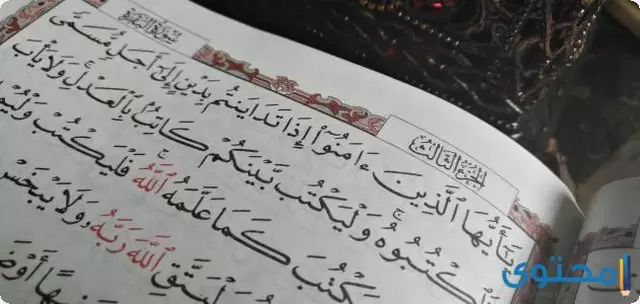 سورة البقرة
الجزء الثالث
يَٰٓأَيُّهَا ٱلَّذِينَ ءَامَنُوٓا۟ إِذَا تَدَايَنتُم بِدَيْنٍ إِلَىٰٓ أَجَلٍ مُّسَمًّى
فَٱكْتُبُوهُ وَلْيَكْتُب بَّيْنَكُمْ كَاتِبٌۢ بِٱلْعَدْلِ وَلَا يَأْبَ
يَكْتُبَ كَمَا عَلَّمَهُ ٱللَّهُ فَلْيَكْتُبْ
وَلْيَتَّقِ ٱللَّهَ رَبَّهُۥ وَلَا يَبْخَسْ
محتوى